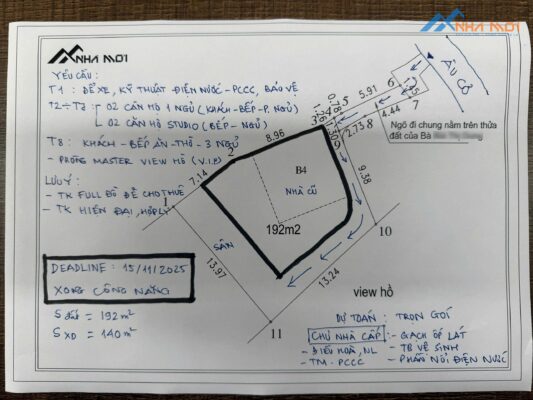 NHÀ MỚI
NHÀ MỚI
YÊU CẦU:
T1 : ĐỂ XE, KỸ THUẬT ĐIỆN NƯỚC - PCCC, BẢO VỆ
T2 → T7 - 02 CĂN HỘ 1 NGỦ (KHÁCH - BẾP - P. NGỦ)
- 02 CĂN HỘ STUDIO (BẾP - NGỦ)
T8 : KHÁCH - BẾP ĂN - THỜ - 3 NGỦ
- PHÒNG MASTER VIEW HỒ (V.I.P)
LƯU Ý
- TK FULL ĐỒ ĐỂ CHO THUÊ
- TK HIỆN ĐẠI, HỢP LÝ
DEADLINE : 15/11/2025
XONG CÔNG NĂNG
S đất = 192 m²
S XD = 140 m²
ÂU CƠ
Ngõ đi chung nằm trên thửa
đất của Bà
1
7.14
2
8.96
3
4
5
1.26
0.78
5.91
6
7
4.44
8
2.73
9
9.38
10
13.24
11
13.97
B4
NHÀ CŨ
192m2
SÂN
view hồ
DỰ TOÁN : TRỌN GÓI
CHỦ NHÀ CẤP : - GẠCH ỐP LÁT
- ĐIỀU HOÀ, NL - TB VỆ SINH
- TM - PCCC - PHẦN NỔI ĐIỆN NƯỚC